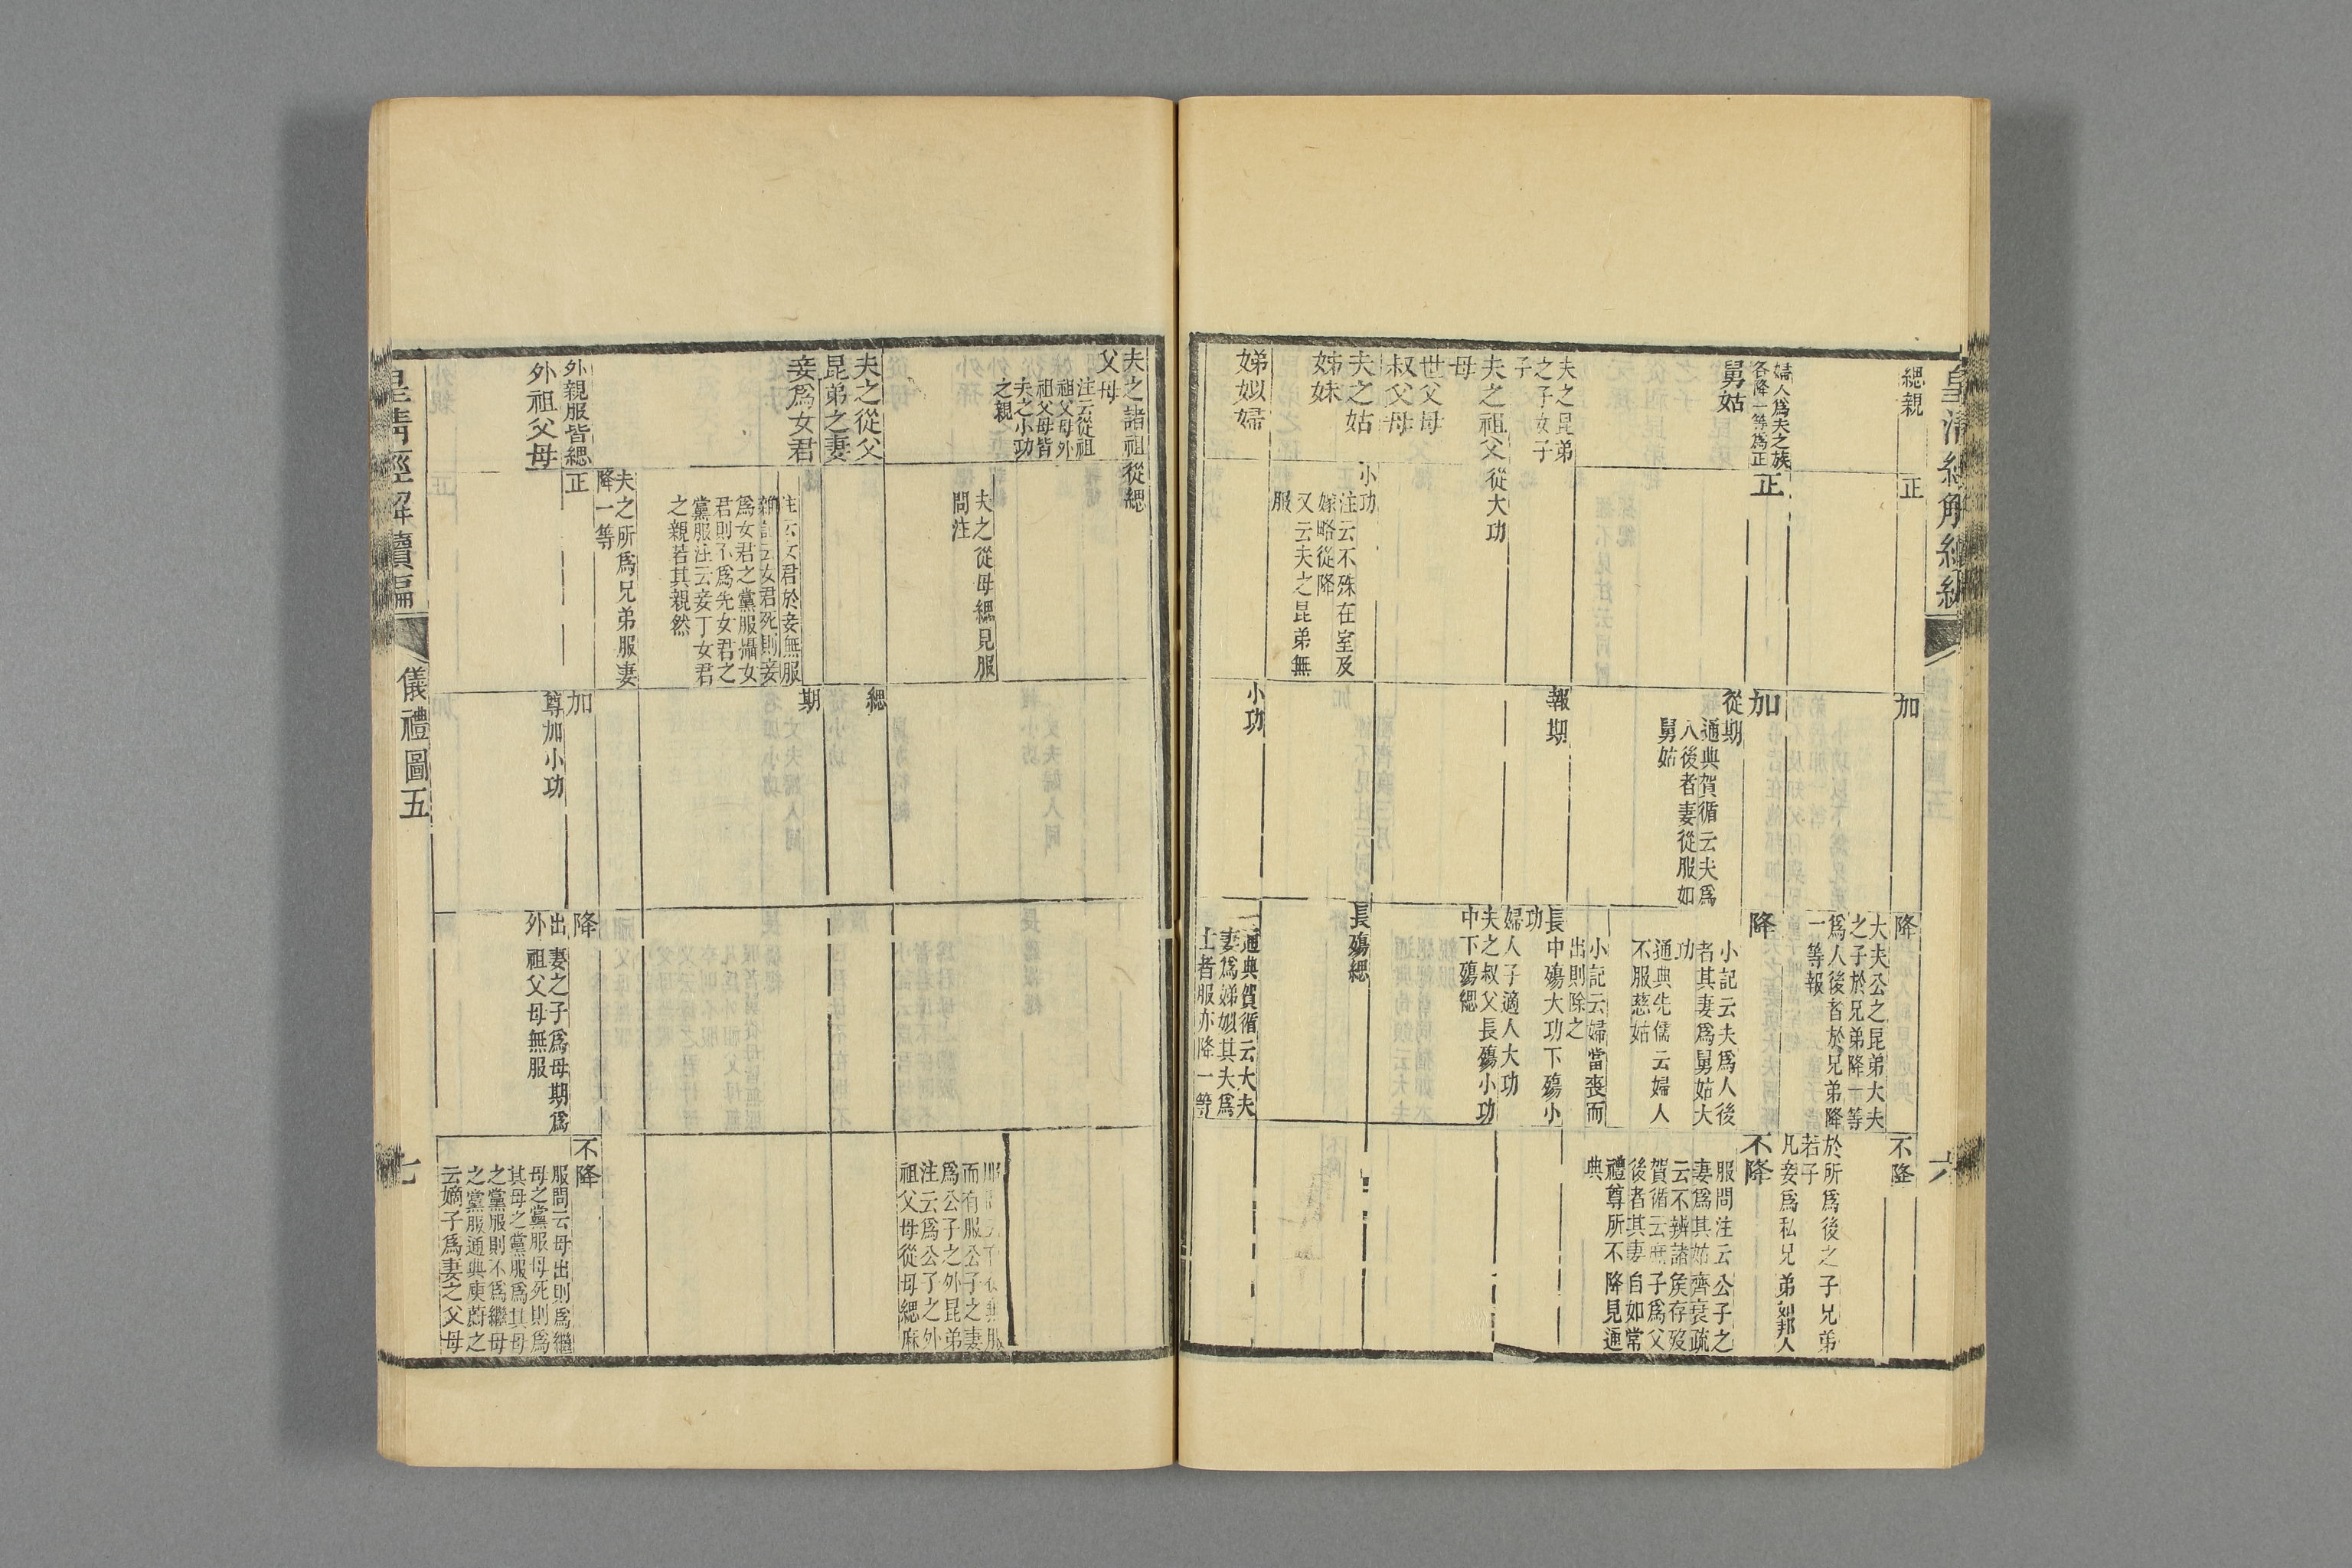 緦親
正
加
降
大夫公之昆弟大夫
之子於兄弟降一等
爲人後者於兄弟降
一等報
不降
於所爲後之子兄弟
若子
凡妾爲私兄弟如邦人
婦人爲夫之族
各降一等爲正
正
加
降
不降
舅姑
從期
通典賀循云夫爲
人後者妻從服如
舅姑
小記云夫爲人後
者其妻爲舅姑大
功
通典先儒云婦人
不服慈姑
服問注云公子之
妻爲其姑齊衰疏
云不辨諸侯存歿
賀循云庶子爲父
後者其妻自如常
禮尊所不降見通
典
小記云婦當喪而
出則除之
夫之昆弟
之子女子
子
報期
長中殤大功下殤小
功
婦人子適人大功
夫之祖父
母
世父母
叔父母
從大功
夫之叔父長殤小功
中下殤緦
夫之姑
姊妹
小功
注云不殊在室及
嫁略從降
又云夫之昆弟無
服
長殤緦
娣姒婦
小功
通典賀循云大夫
妻爲娣姒其夫爲
士者服亦降一等
夫之諸祖
父母
注云從祖
祖父母外
祖父母皆
夫之小功
之親
從緦
夫之從母緦見服
問注
而有服公子之妻
爲公子之外昆弟
注云爲公子之外
祖父母從母緦麻
夫之從父
昆弟之妻
緦
妾爲女君
期
注云女君於妾無服
雜記云女君死則妾
爲女君之黨服攝女
君則不爲先女君之
黨服注云妾於女君
之親若其親然
夫之所爲兄弟服妻
降一等
外親服皆緦
正
加
降
不降
外祖父母
尊加小功
出妻之子爲母期爲
外祖父母無服
服問云母出則爲繼
母之黨服母死則爲
其母之黨服爲其母
之黨服則不爲繼母
之黨服通典庾蔚之
云嫡子爲妻之父母
皇清經解續編
儀禮圖五
七